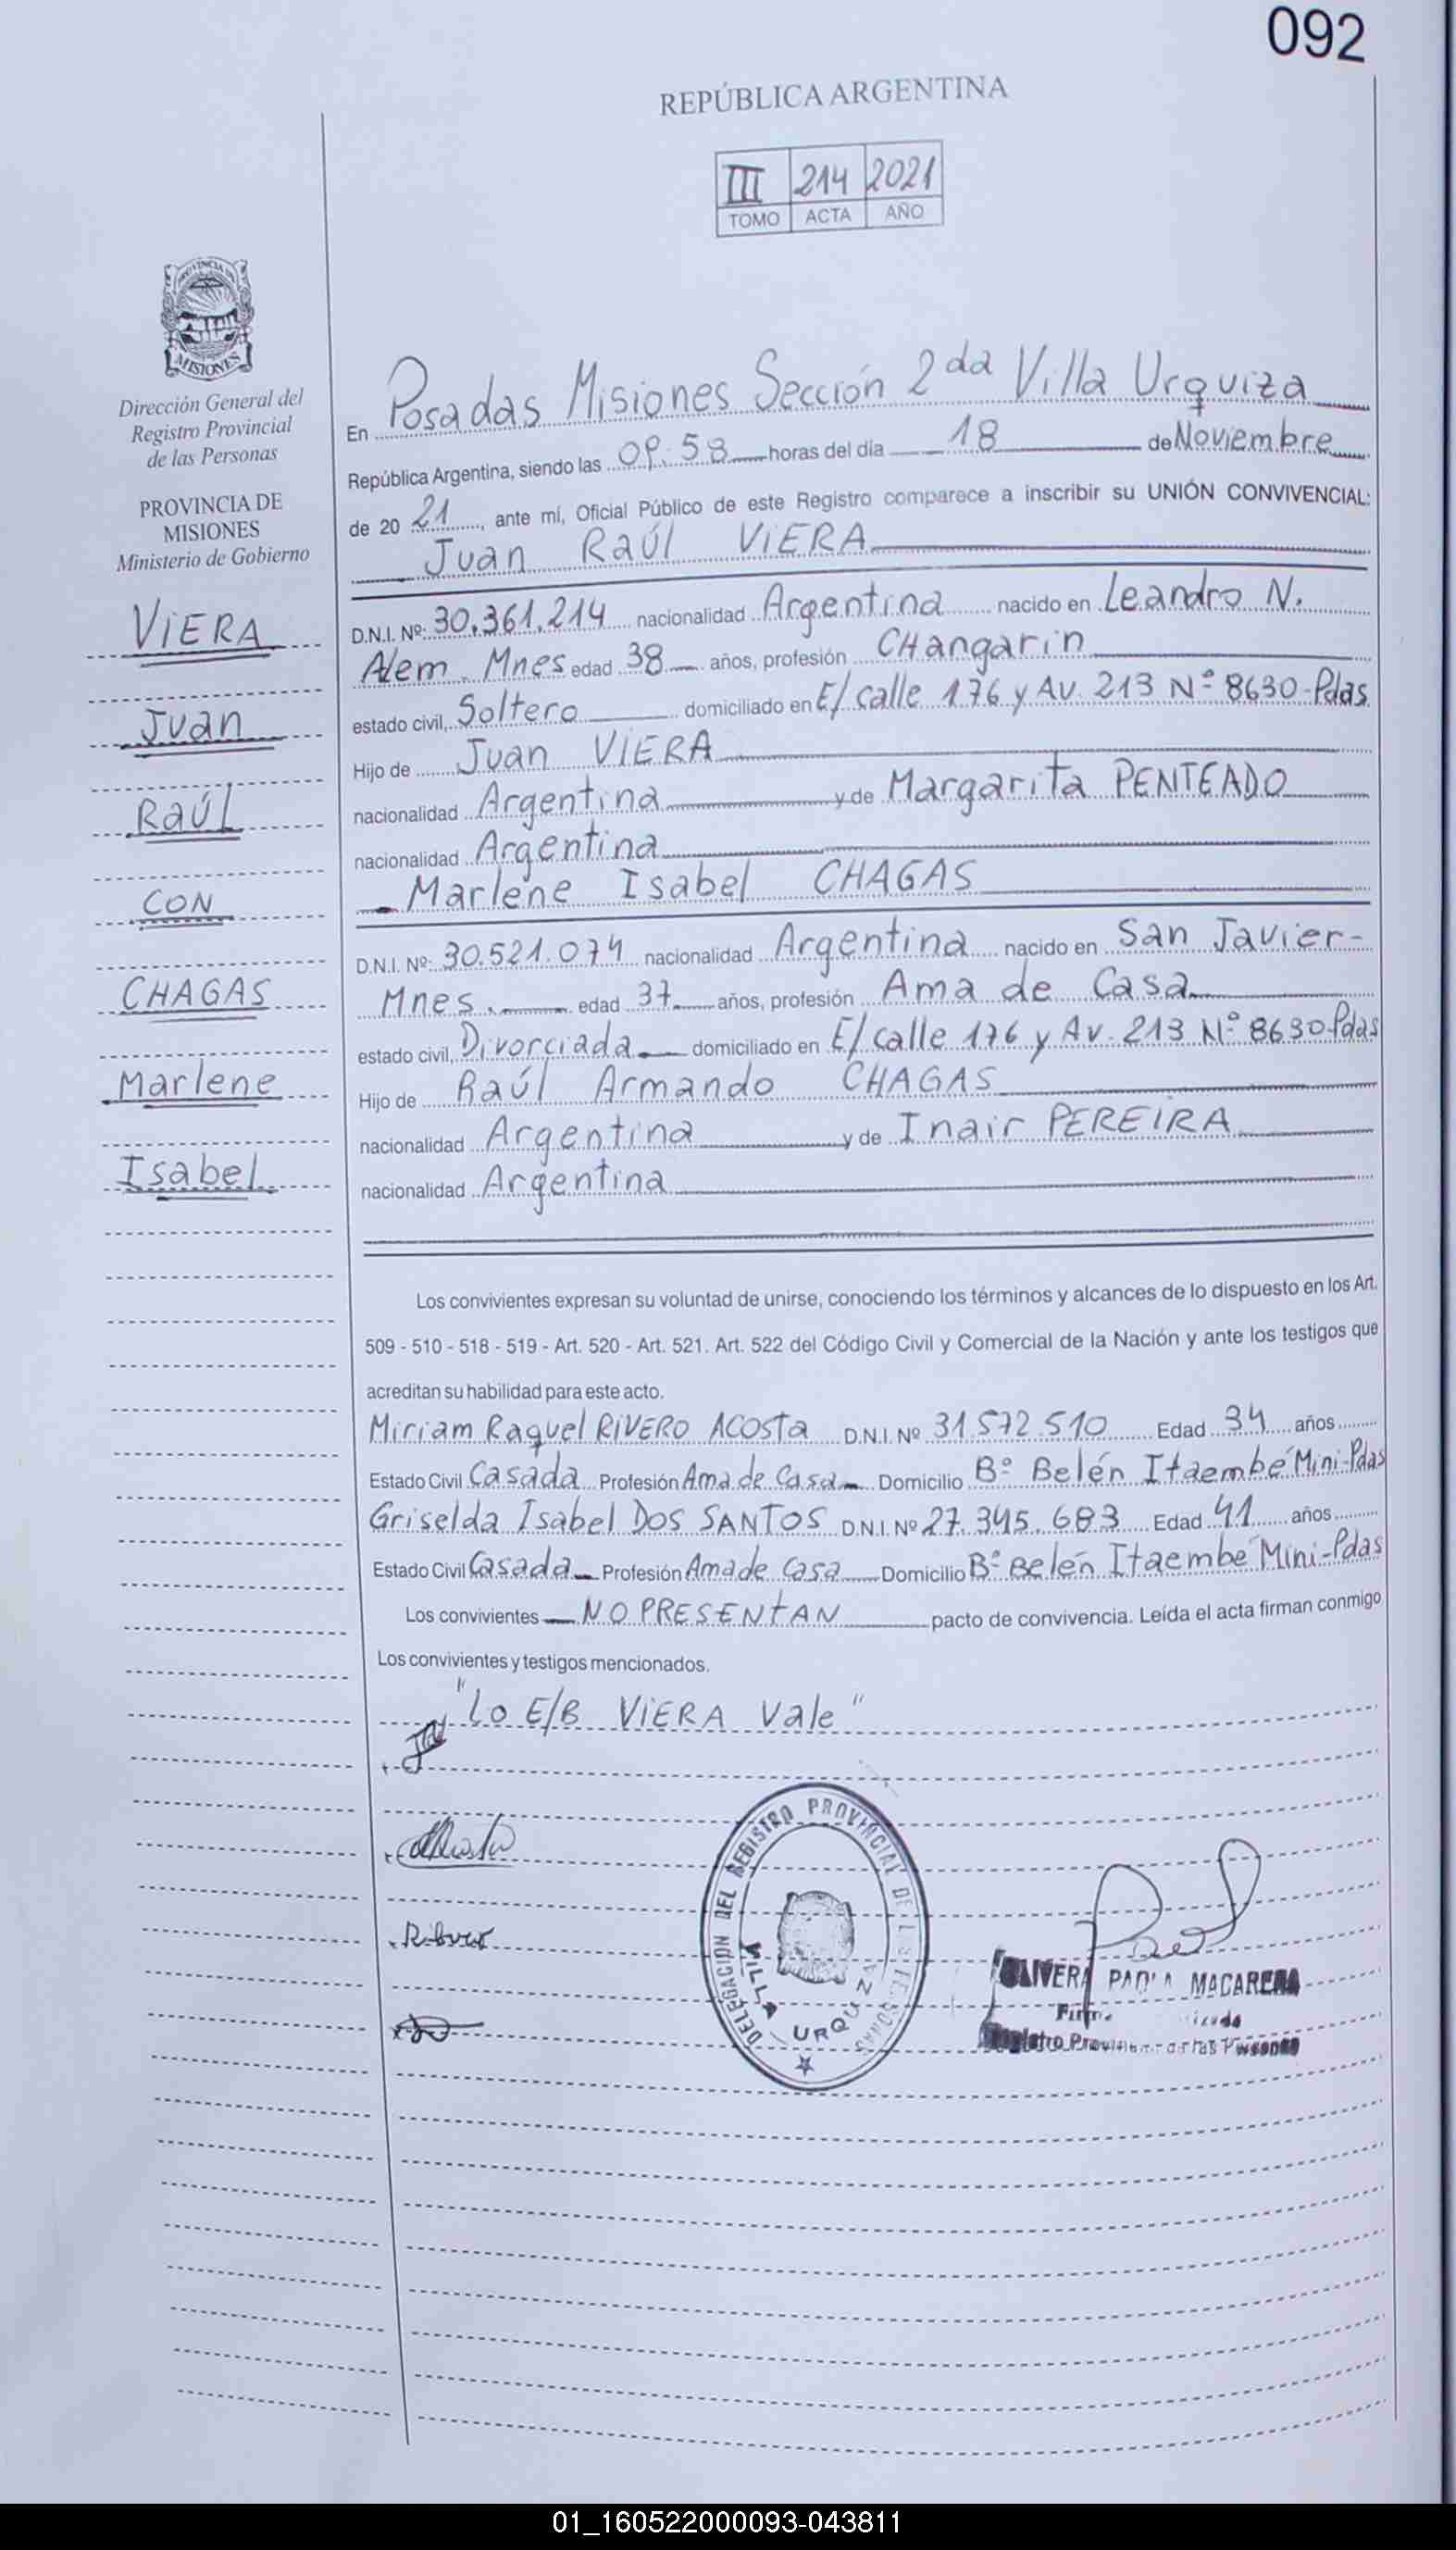 092
REPÚBLICA ARGENTINA
III 214 2021
TOMO ACTA AÑO
PROVINCIA DE
MISIONES
Dirección General del
Registro Provincial
de las Personas
PROVINCIA DE
MISIONES
Ministerio de Gobierno
VIERA
Juan
RAÚL
CON
CHAGAS
Marlene
Isabel
En Posadas Misiones Sección 2da Villa Urquiza
República Argentina, siendo las 09:58 horas del día 18 de Noviembre
de 20 21, ante mí, Oficial Público de este Registro comparece a inscribir su UNIÓN CONVIVENCIAL:
Juan RAÚL VIERA
D.N.I. Nº: 30.361.214 nacionalidad Argentina nacido en Leandro N.
Alem. Mnes edad 38 años, profesión CHangarin
estado civil, Soltero domiciliado en E/ calle 176 y AV. 213 Nº 8630-Pdas
Hijo de Juan VIERA
nacionalidad Argentina y de Margarita PENTEADO
nacionalidad Argentina
Marlene Isabel CHAGAS
D.N.I. Nº: 30.521.074 nacionalidad Argentina nacido en San Javier-
Mnes. edad 37 años, profesión Ama de Casa
estado civil, Divorciada domiciliado en E/ calle 176 y AV. 213 Nº 8630-Pdas
Hijo de Raúl Armando CHAGAS
nacionalidad Argentina y de Inair PEREIRA
nacionalidad Argentina
Los convivientes expresan su voluntad de unirse, conociendo los términos y alcances de lo dispuesto en los Art.
509 - 510 - 518 - 519 - Art. 520 - Art. 521. Art. 522 del Código Civil y Comercial de la Nación y ante los testigos que
acreditan su habilidad para este acto.
Miriam Raquel RIVERO ACOSTA D.N.I. Nº 31.572.510 Edad 34 años
Estado Civil Casada Profesión Ama de Casa Domicilio Bº Belén Itaembé Mini-Pdas
Griselda Isabel DOS SANTOS D.N.I. Nº 27.345.683 Edad 41 años
Estado Civil Casada Profesión Ama de Casa Domicilio Bº Belén Itaembé Mini-Pdas
Los convivientes NO PRESENTAN pacto de convivencia. Leída el acta firman conmigo
Los convivientes y testigos mencionados.
"Lo E/B VIERA Vale"
DELEGACION DEL REGISTRO PROVINCIAL DE
VILLA URQUIZA
MACARENA
01_160522000093-043811